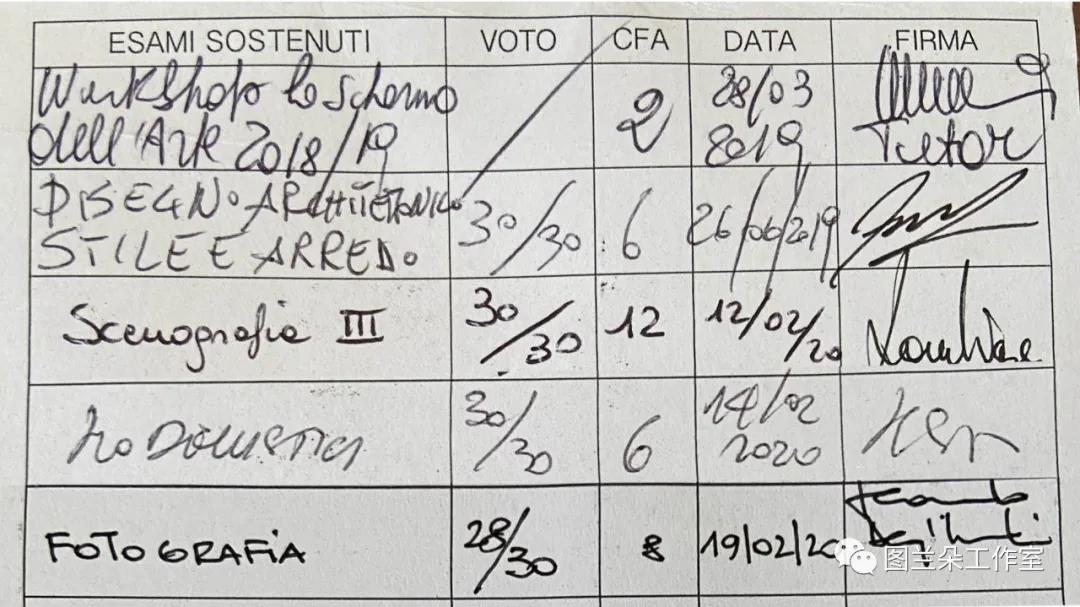 ESAMI SOSTENUTI VOTO CFA DATA FIRMA
Workshop lo schermo
dell'Arte 2018/19 2 28/03
2019 Tutor
DISEGNO ARCHITETTONICO
STILE E ARREDO 30/30 6 26/06/2019
Scenografia III 30/30 12 12/02/20
30/30 6 14/02
2020
FOTOGRAFIA 28/30 8 19/02/20
图兰朵工作室